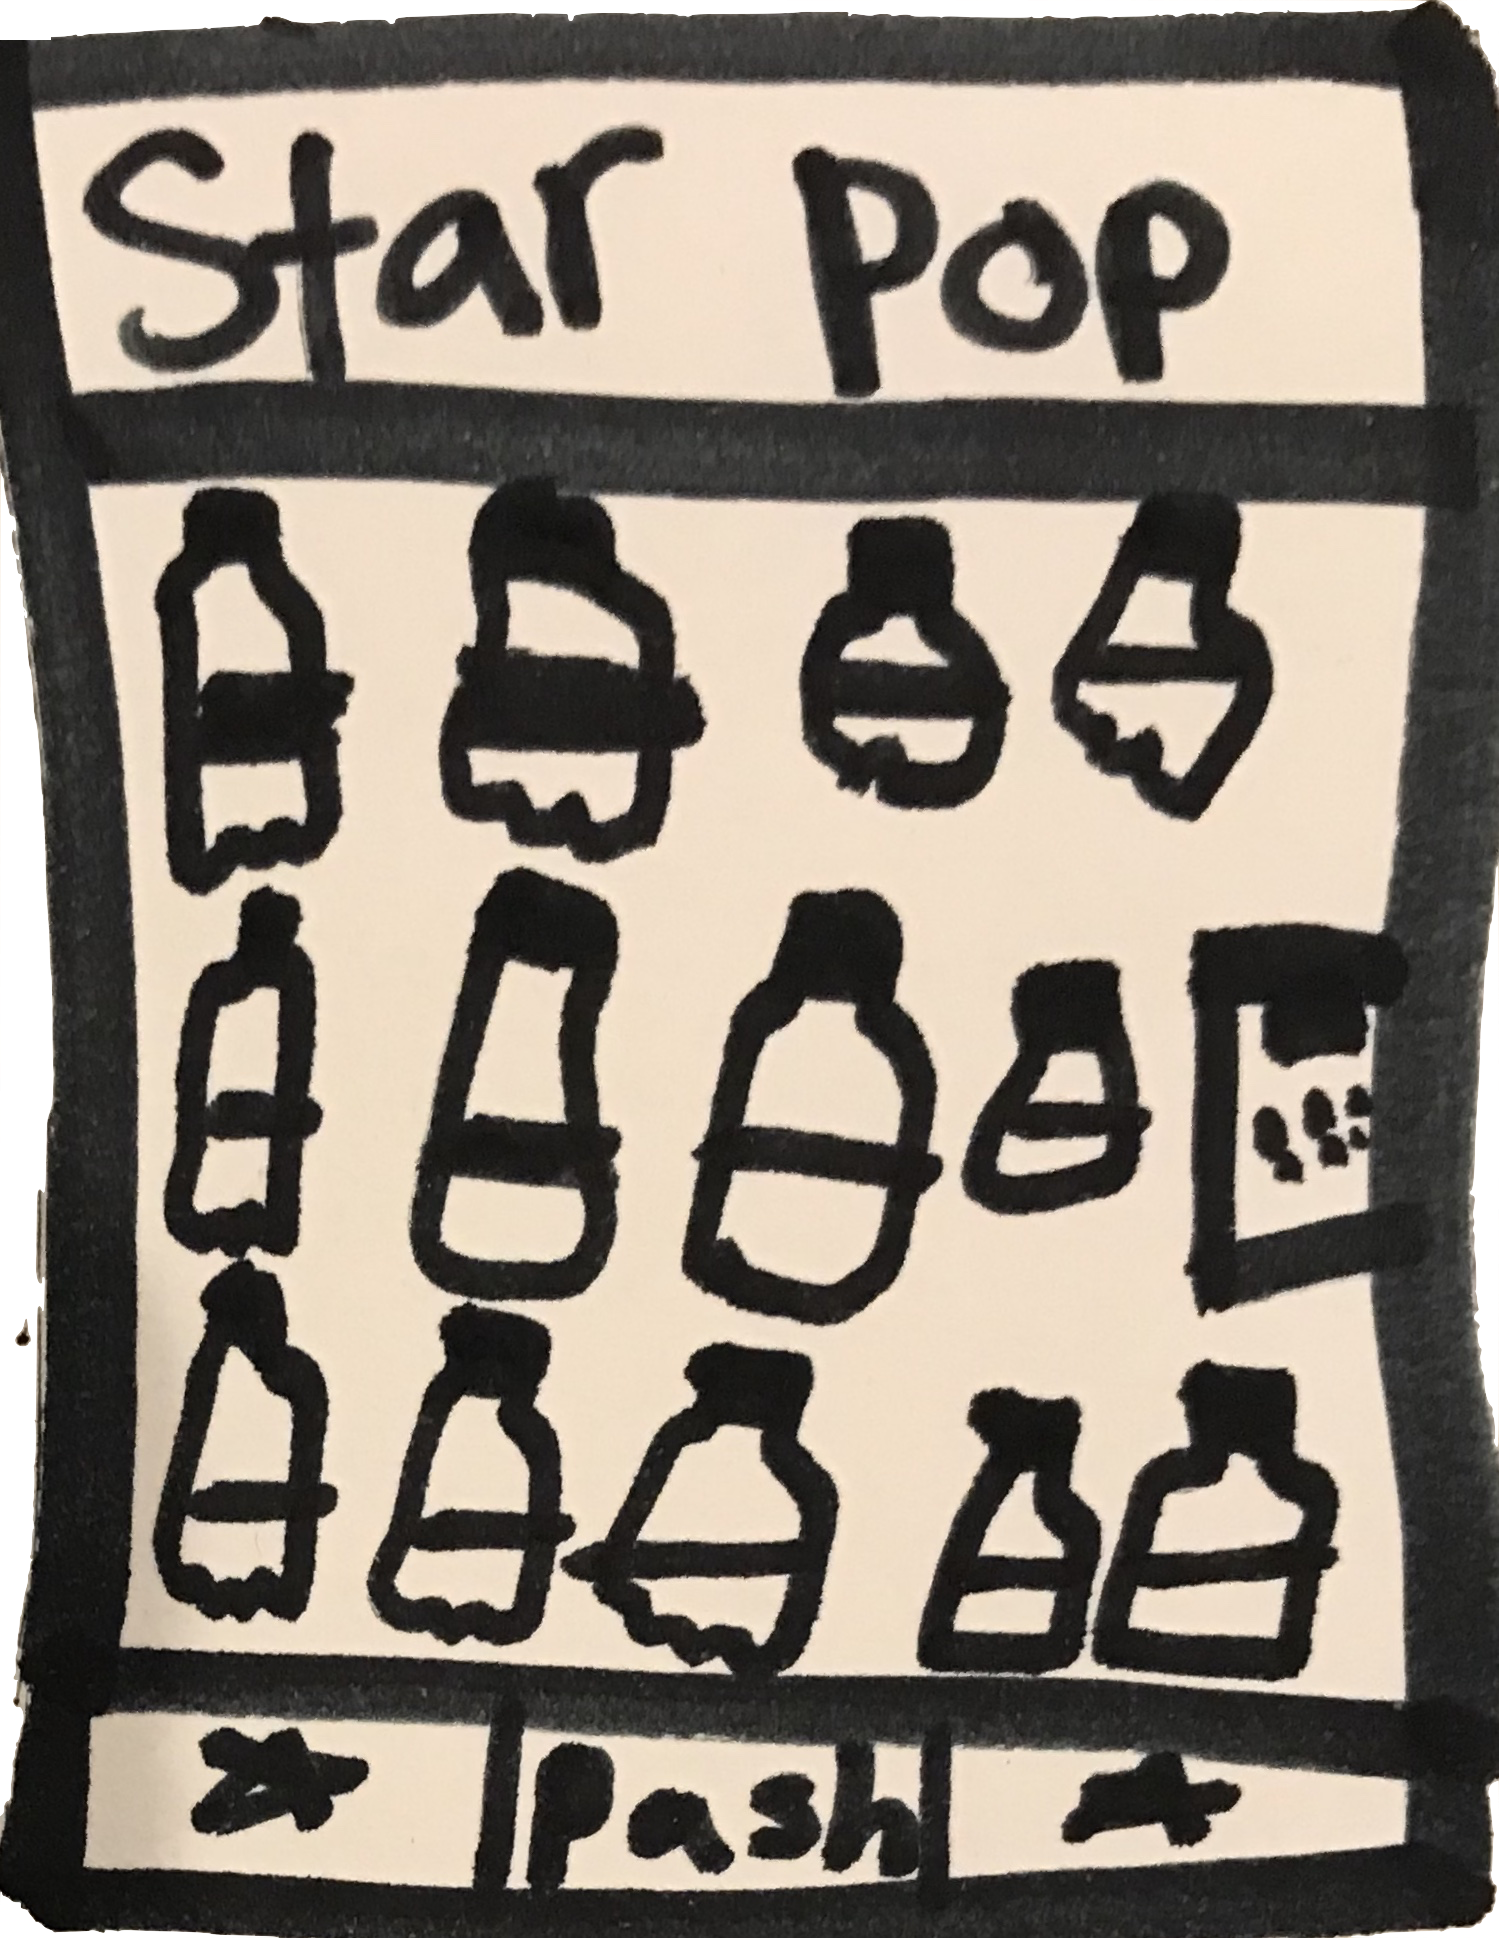 Star Pop
Pash